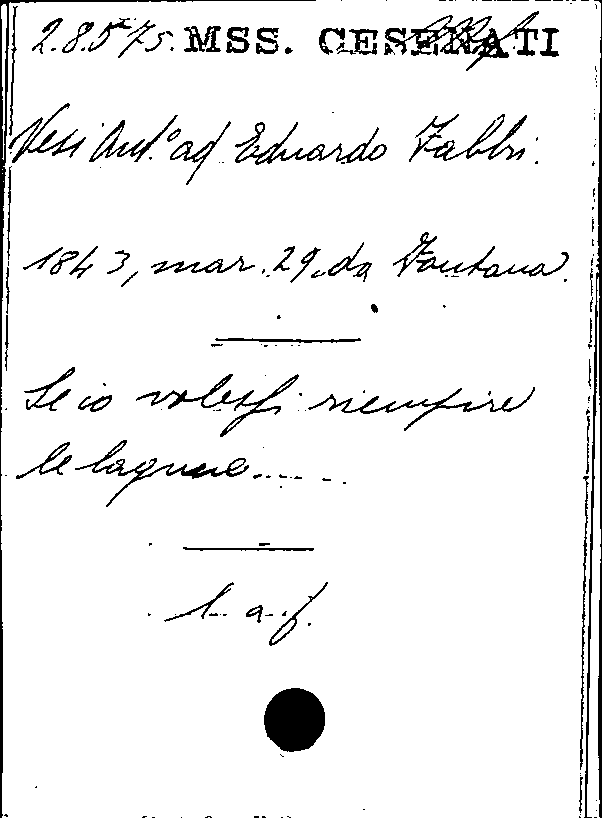 2.8.575. MSS. CESENATI
Vesi Ant.° ad Eduardo Fabbri.
1843, mar. 29. da Fontana.
Se io volessi riempire
le lagune.....
l. a. f.